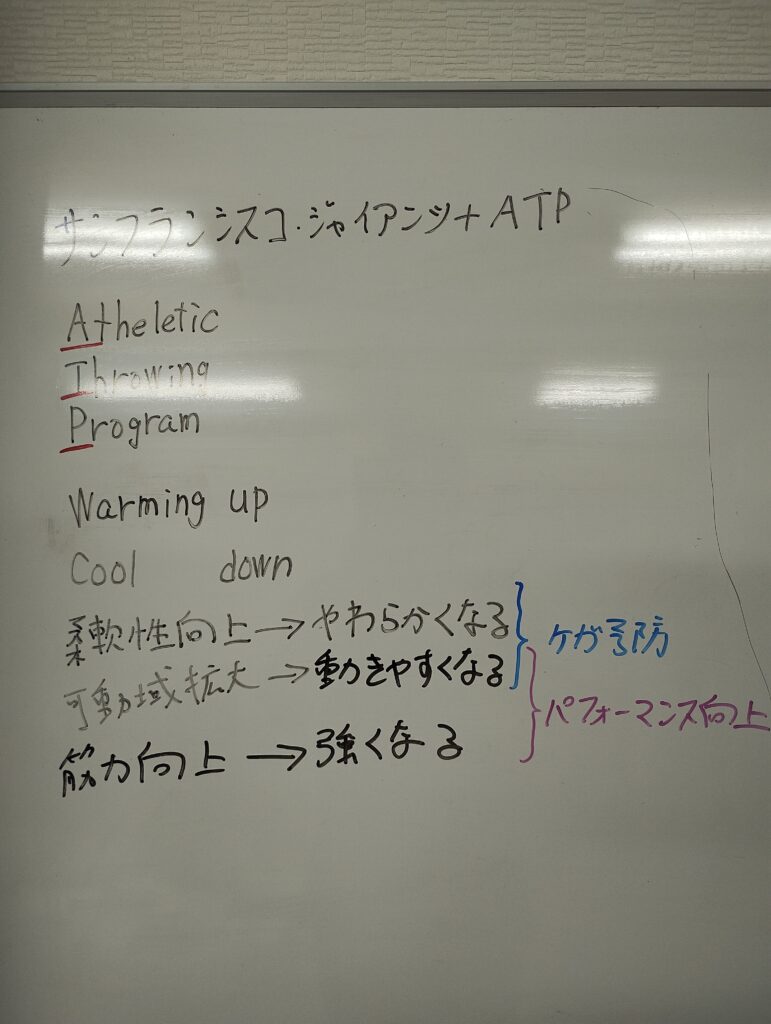 サンフランシスコ・ジャイアンツ+ATP
Atheletic
Throwing
Program
Warming up
Cool down
柔軟性向上→やわらかくなる
ケガ予防
可動域拡大→動きやすくなる
パフォーマンス向上
筋力向上→強くなる